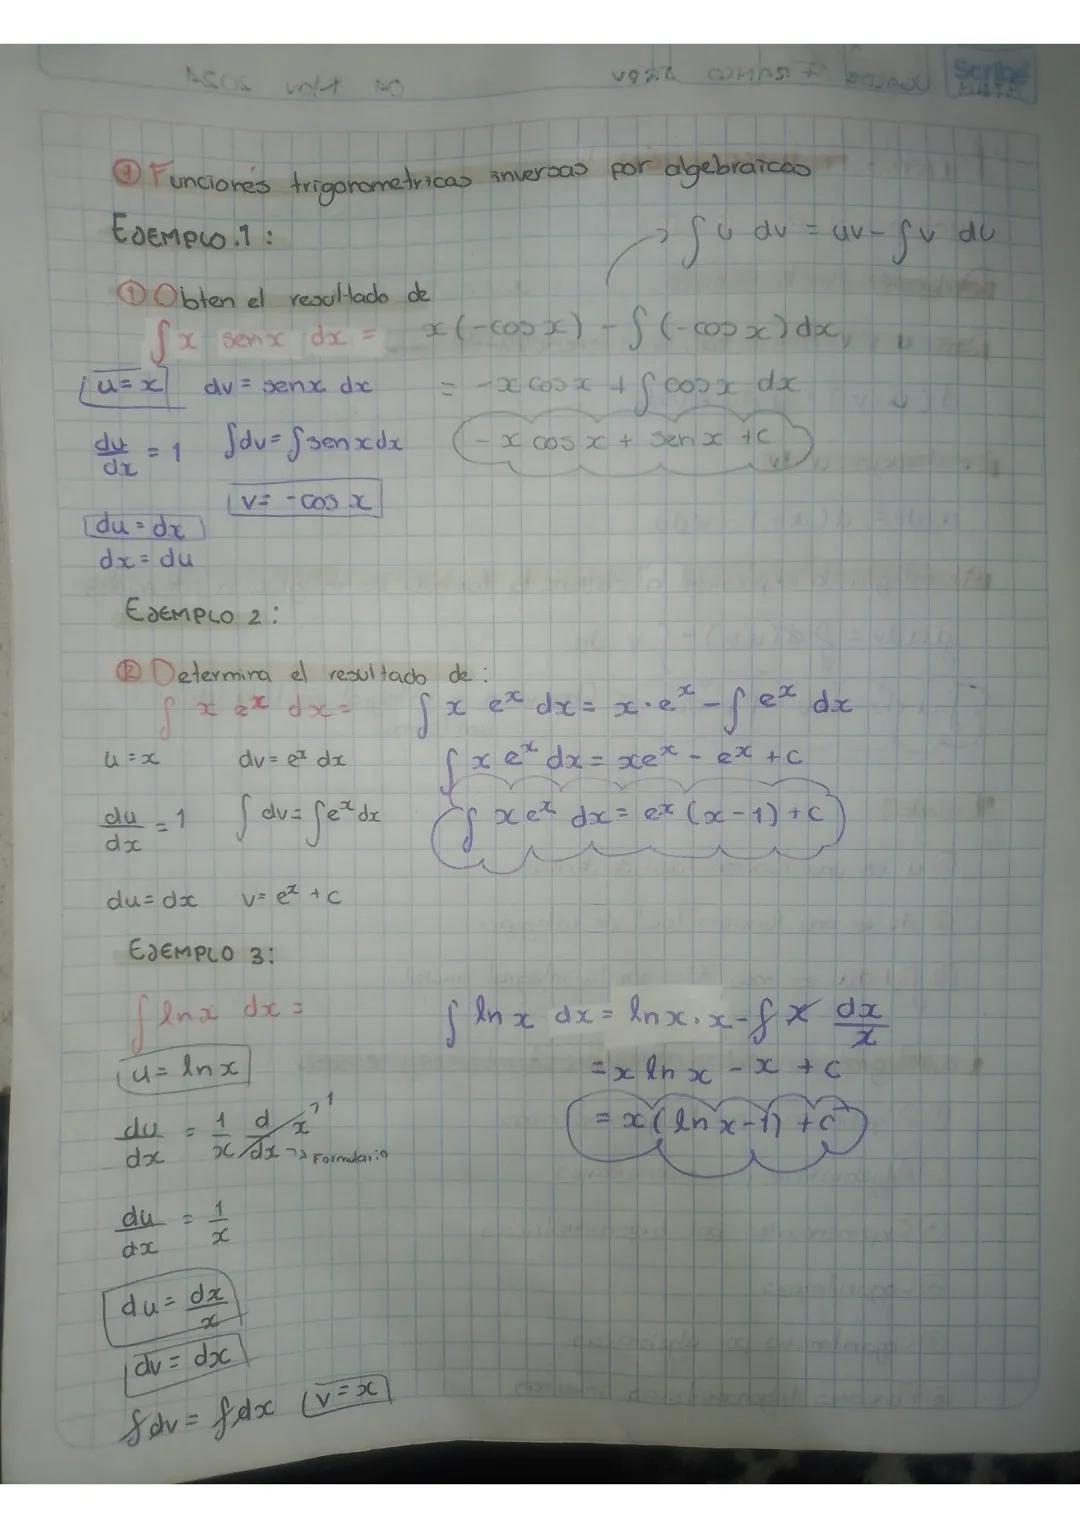 Scribe
⑨ Funciones trigonometricas inversas por algebraicas
EJEMPLO.1:
∫ u dv = uv - ∫ v du
① Obten el resultado de
∫ x senx dx = x(-cos x) - ∫ (-cos x) dx
u = x dv = senx dx = -x cos x + ∫ cos x dx
du/dx = 1 ∫dv = ∫senxdx - x cos x + sen x + c
v = -cos x
du = dx
dx = du
EJEMPLO 2:
② Determina el resultado de :
∫ x e^x dx = ∫ x e^x dx = x·e^x - ∫ e^x dx
u = x dv = e^x dx ∫ x e^x dx = xe^x - e^x + c
du/dx = 1 ∫ dv = ∫e^x dx ∫ xe^x dx = e^x (x-1) + c
du = dx v = e^x + c
EJEMPLO 3:
∫ lnx dx = ∫ ln x dx = lnx · x - ∫ x dx/x
u = ln x = x ln x - x + c
du/dx = 1/x d/dx x → 1 → Formulario = x(ln x-1) + c
du/dx = 1/x
du = dx/x
dv = dx
∫dv = ∫dx v = x